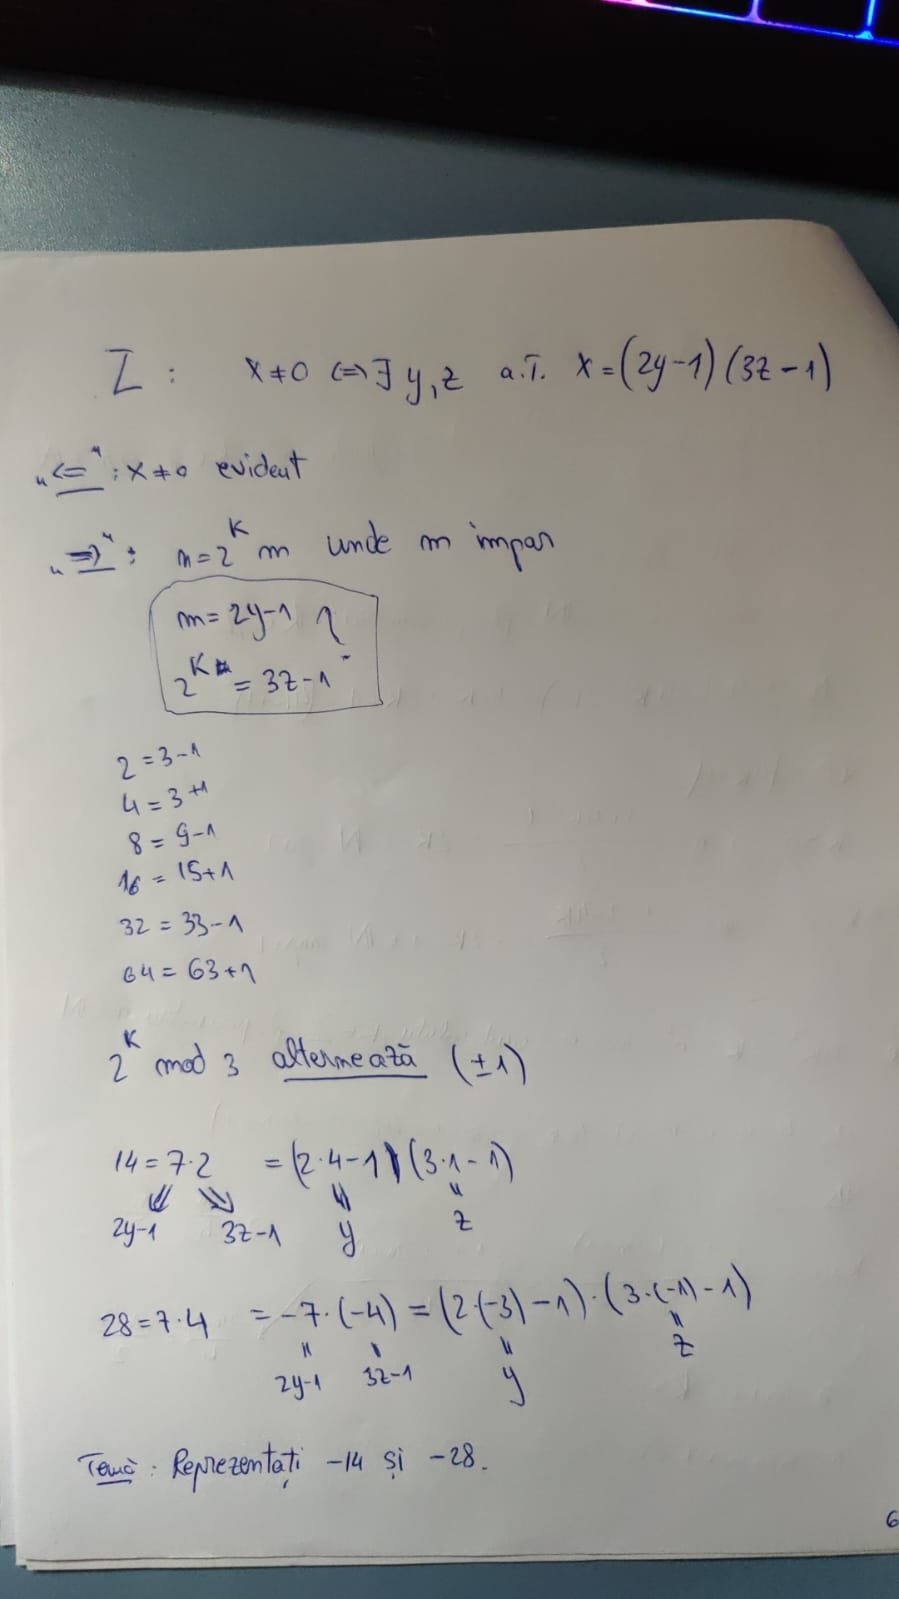 Z : x≠0 ⇔ ∃ y,z a.î. x=(2y-1)(3z-1)
„⇐": x≠0 evident
„⇒": n=2^k m unde m impar
m=2y-1 ?
2^k = 3z-1
2=3-1
4=3+1
8=9-1
16=15+1
32=33-1
64=63+1
2^k mod 3 alternează (±1)
14=7·2 =(2·4-1)(3·1-1)
2y-1 3z-1 y z
28=7·4 =-7·(-4)=(2·(-3)-1)·(3·(-1)-1)
2y-1 3z-1 y z
Temă: Reprezentați -14 și -28.
6